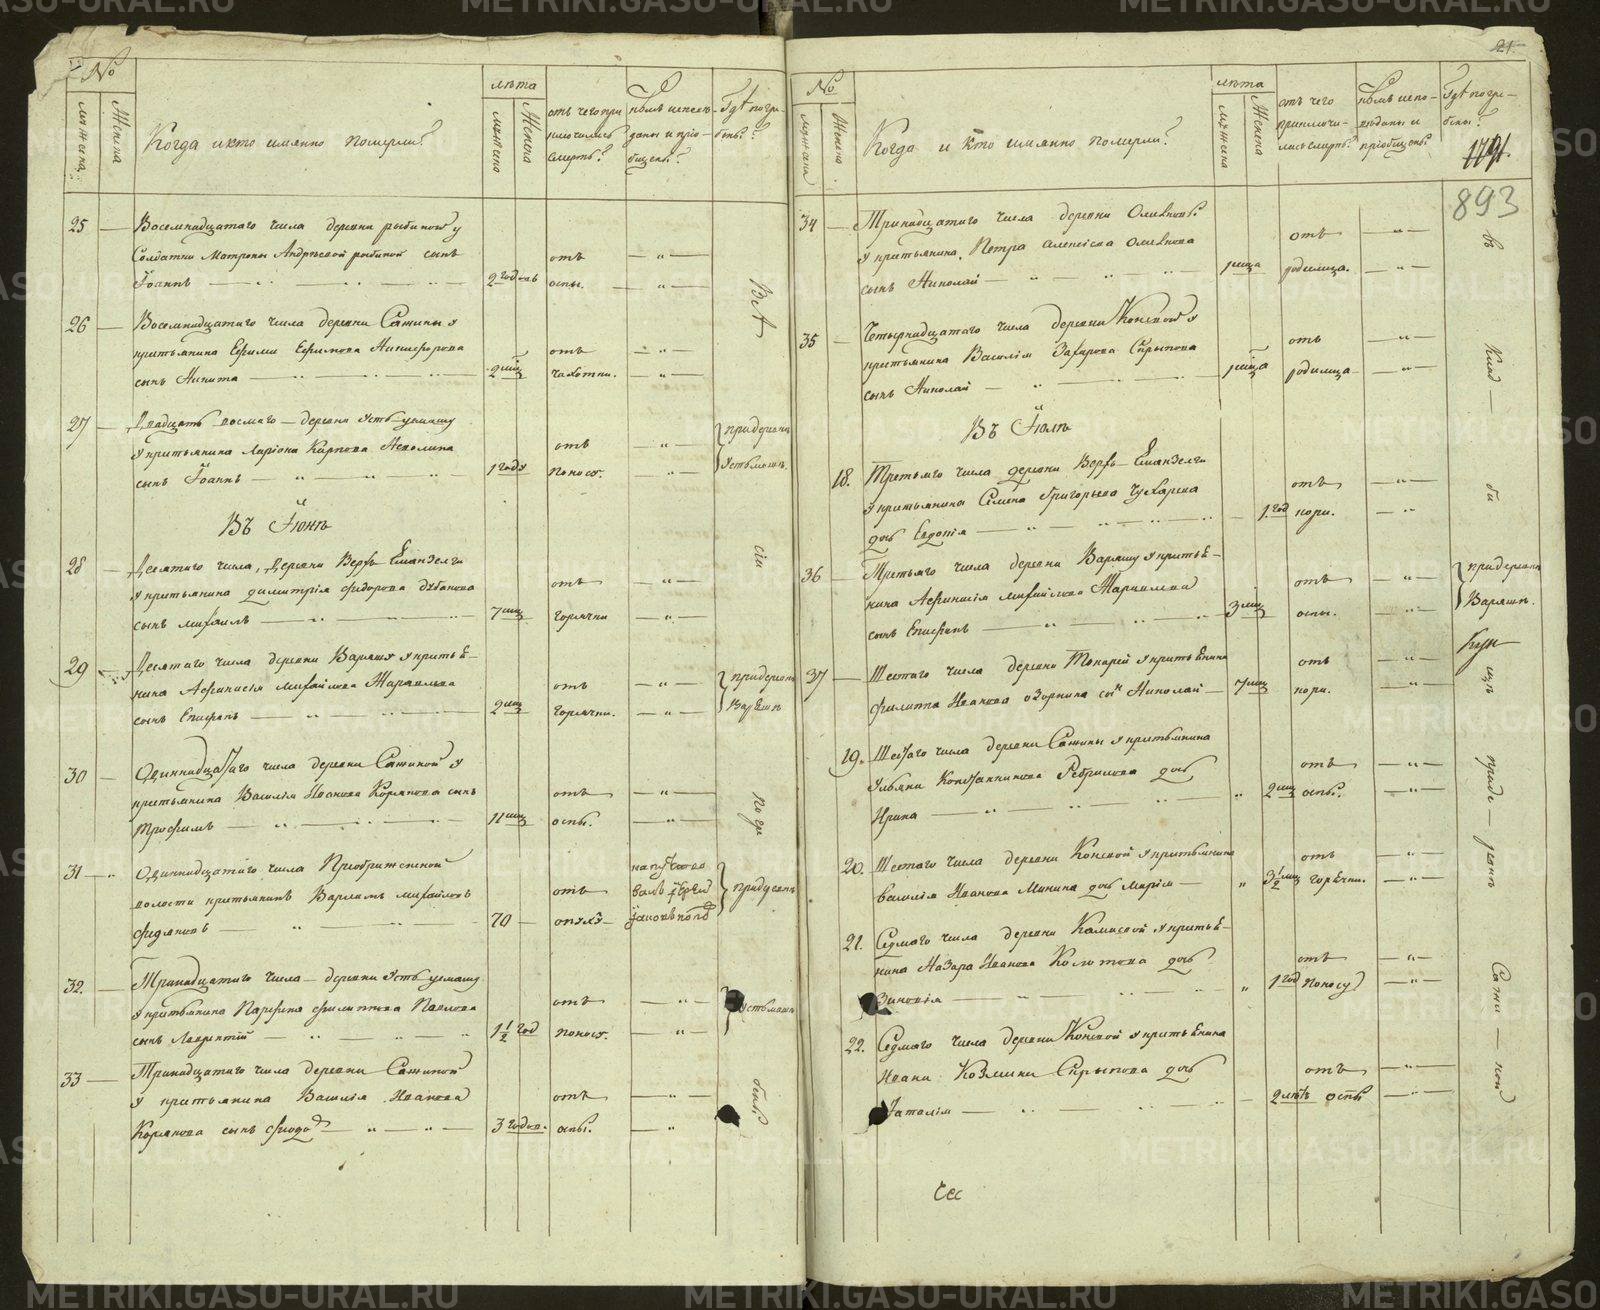 №
мужеска
женска
Когда и кто имянно померли?
лѣта
мужеска
Женска
отъ чего при
ключилась
смерть?
кѣмъ исповѣ-
даны и прiо-
бщены?
Гдѣ погре-
бены?
25 — Восемнадцатаго числа деревни рыбиной у
Солдатки Матроны Андрѣевой рыбиной сынъ
Iоаннъ
2 годовъ
отъ
оспы.
26 — Восемнадцатаго числа деревни Сажины у
крестьянина Ефима Ефимова Никифорова
сынъ Никита
2 мцъ
отъ
чахотки.
27 — Двадцать осмаго — деревни Усть-умашу
у крестьянина Ларiона Карпова
сынъ Iоаннъ
1 году
отъ
поносу.
при деревни
Устьмашъ.
Въ Iюнѣ
28 — Десятаго числа, деревни Верхъ Еманзелги
у крестьянина Димитрiя Федорова Дубанова
сынъ Михаилъ
7 мцъ
отъ
горячки
29 — Десятаго числа деревни Варяшу у крестья-
нина Афанасiя Михайлова
сынъ Епифанъ
2 мцъ
отъ
горячки.
при деревни
Варяшъ
30 — Одиннадцатаго числа деревни Сажиной у
крестьянина Василiя Иванова Корякова сынъ
Трофимъ
11 мцъ
отъ
оспы.
31 — Одиннадцатаго числа Преображенской
волости крестьянинъ Варламъ Михайловъ
70
отъ
опуху
32. Тринадцатаго числа — деревни Усть умашу
у крестьянина Парфена Филиппова Павлова
сынъ Лаврентiй
1 1/2 год
отъ
поносу.
Устьмашъ
33 — Тринадцатаго числа деревни Сажиной
у крестьянина Василiя Иванова
Корякова сынъ Феодоръ
3 годов.
отъ
оспы.
Всѣ
сiи
погре
бены
№
мужеска
Женска
Когда и кто имянно померли?
лѣта
мужеска
Женска
отъ чего
приключи-
лась смерть?
кѣмъ испо-
вѣданы и
прiобщены?
Гдѣ погре-
бены?
21.
1791.
893
34 — Тринадцатаго числа деревни
у крестьянина Петра Алексѣева
сынъ Николай
1 мцъ
отъ
родимца.
35 — Четырнадцатаго числа деревни Конской у
крестьянина Василiя Захарова Скрыпова
сынъ Николай
1 мцъ
отъ
родимца
Въ Iюлѣ
18. Третьяго числа деревни Верхъ-Еманзелги
у крестьянина Семена Григорьева Чухарева
дочь Евдокiя
1 год
отъ
кори.
36 — Третьяго числа деревни Варяшу у крестья-
нина Афанасiя Михайлова
сынъ Епифанъ
3 мцъ
отъ
оспы.
при деревни
Варяшъ.
37 — Шестаго числа деревни Токарей у крестьянина
Филиппа Иванова Озорнина сынъ Николай
7 мцъ
отъ
кори.
19. Шестаго числа деревни Сажины у крестьянина
Ульяна Константинова Ребрилова дочь
Ирина
2 мцъ
отъ
оспы.
20. Шестаго числа деревни Конской у крестьянина
Василiя Иванова Минина дочь Марiя
3 1/2 мцъ
отъ
горячки.
21. Седмаго числа деревни Каменской у крестья-
нина Назара Иванова Колотова дочь
Зиновiя
1 год
отъ
поносу
22. Седмаго числа деревни Конской у крестьянина
Ивана Козмина Скрыпова дочь
Наталiя
2 лѣтъ
отъ
оспы
въ
Клад —
би
щѣ
при де —
ревнѣ
Сажи —
ной
METRIKI.GASO-URAL.RU